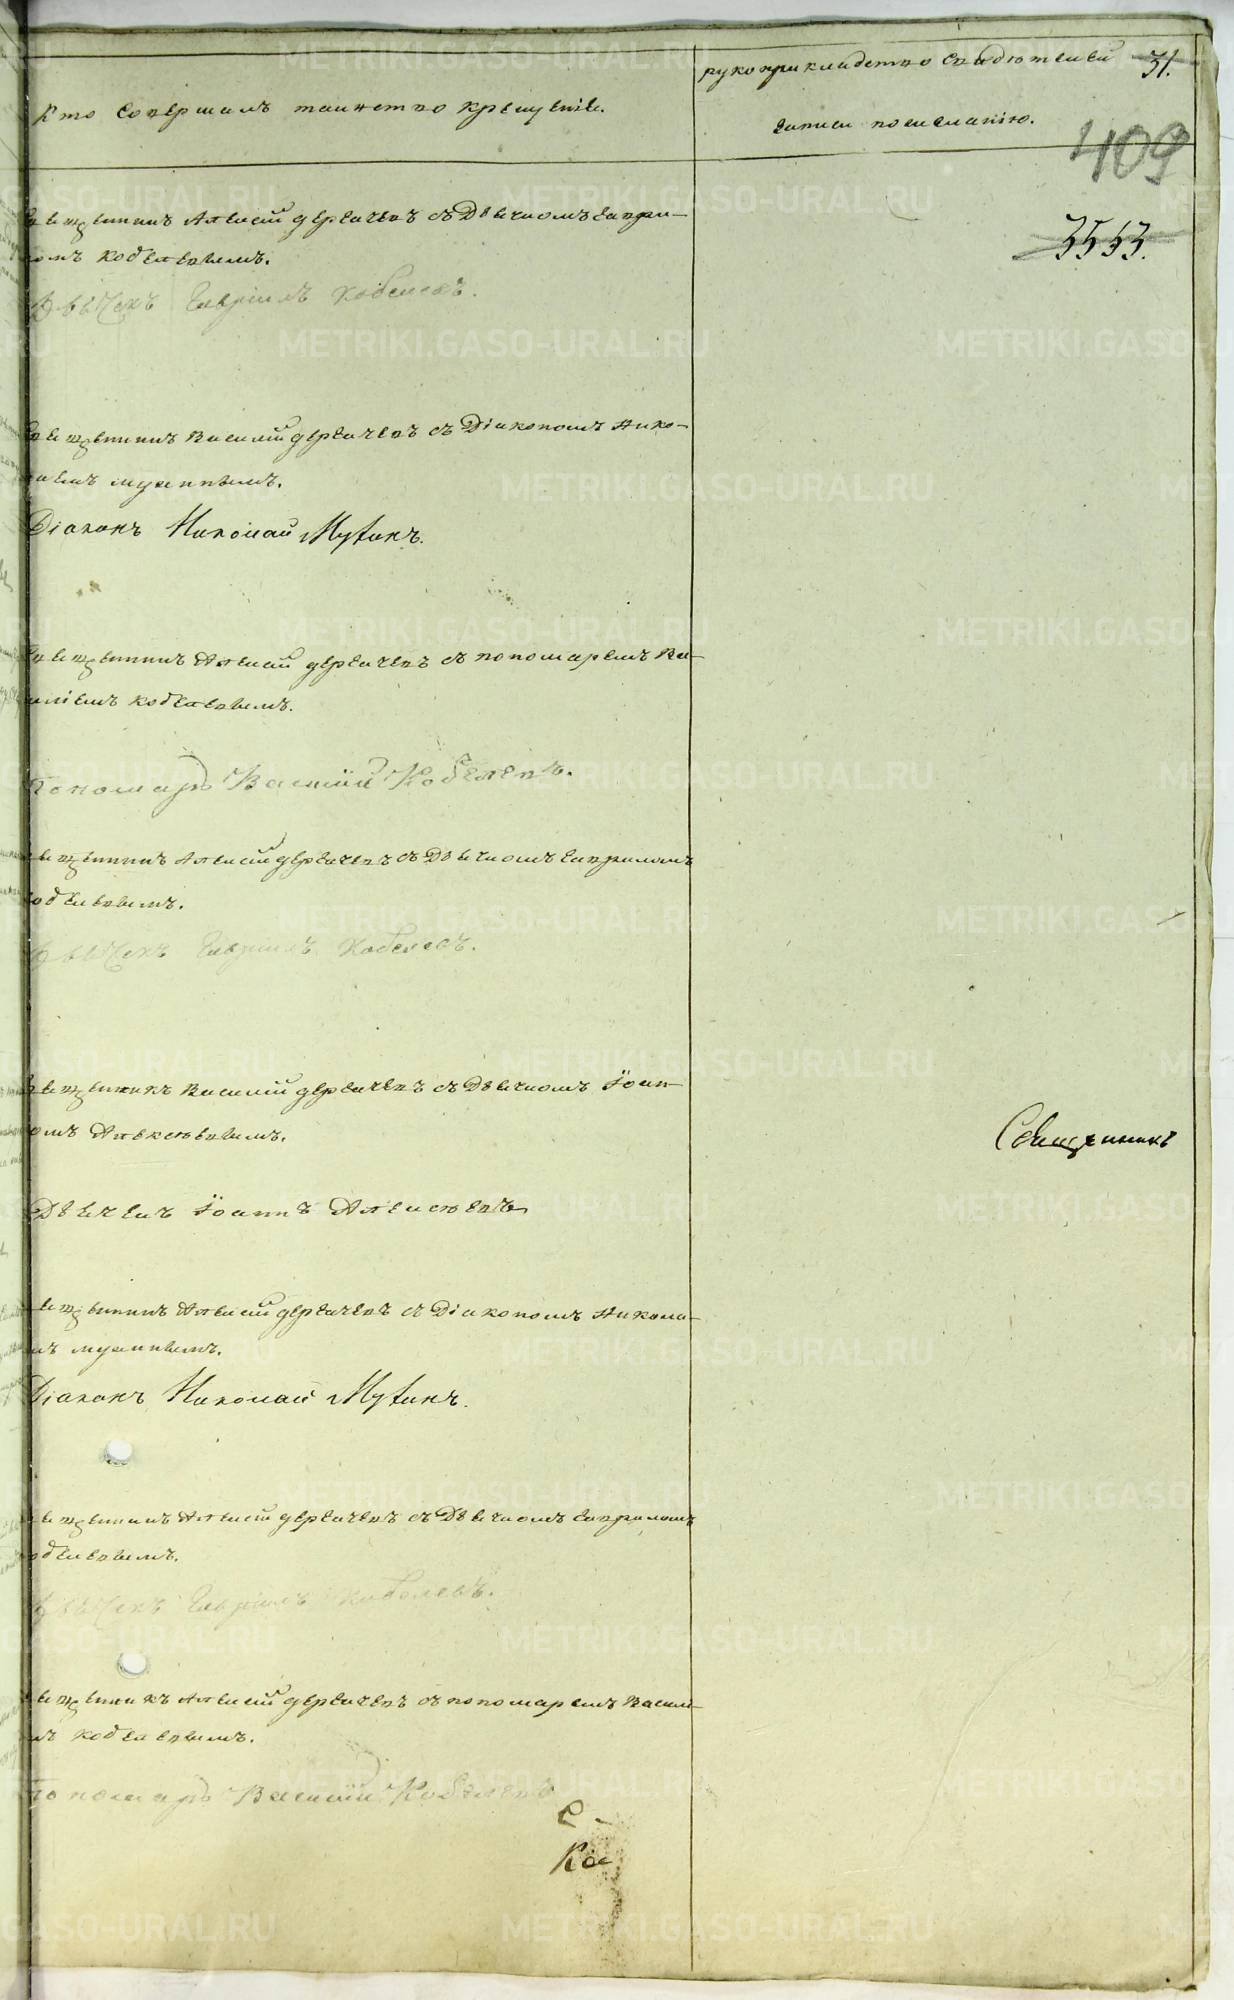 Кто совершалъ таинство крещенія.
рукоприкладство свидѣтелей
записи по желанію.
31.
409
3553.
Священникъ Алексій Дергачевъ съ Дьячкомъ Гаврі-
ломъ Кобелевымъ.
Дьячекъ Гавріилъ Кобелевъ.
Священникъ Василій Дергачевъ съ Діакономъ Нико-
лаемъ Мутинымъ.
Діаконъ Николай Мутинъ.
Священникъ Алексій Дергачевъ съ пономаремъ Ва-
силіемъ Кобелевымъ.
Пономарь Василій Кобелевъ.
Священникъ Алексій Дергачевъ съ Дьячкомъ Гавриломъ
Кобелевымъ.
Дьячекъ Гавріилъ Кобелевъ.
Священникъ Василій Дергачевъ съ Дьячкомъ Іоан-
номъ Алексѣевымъ.
Священникъ
Дьячекъ Іоаннъ Алексѣевъ
Священникъ Алексій Дергачевъ съ Діакономъ Никола-
емъ Мутинымъ.
Діаконъ Николай Мутинъ.
Священникъ Алексій Дергачевъ съ Дьячкомъ Гавриломъ
Кобелевымъ.
Дьячекъ Гавріилъ Кобелевъ.
Священникъ Алексій Дергачевъ съ пономаремъ Васили-
емъ Кобелевымъ.
Пономарь Василій Кобелевъ
С-
Ка
METRIKI.GASO-URAL.RU